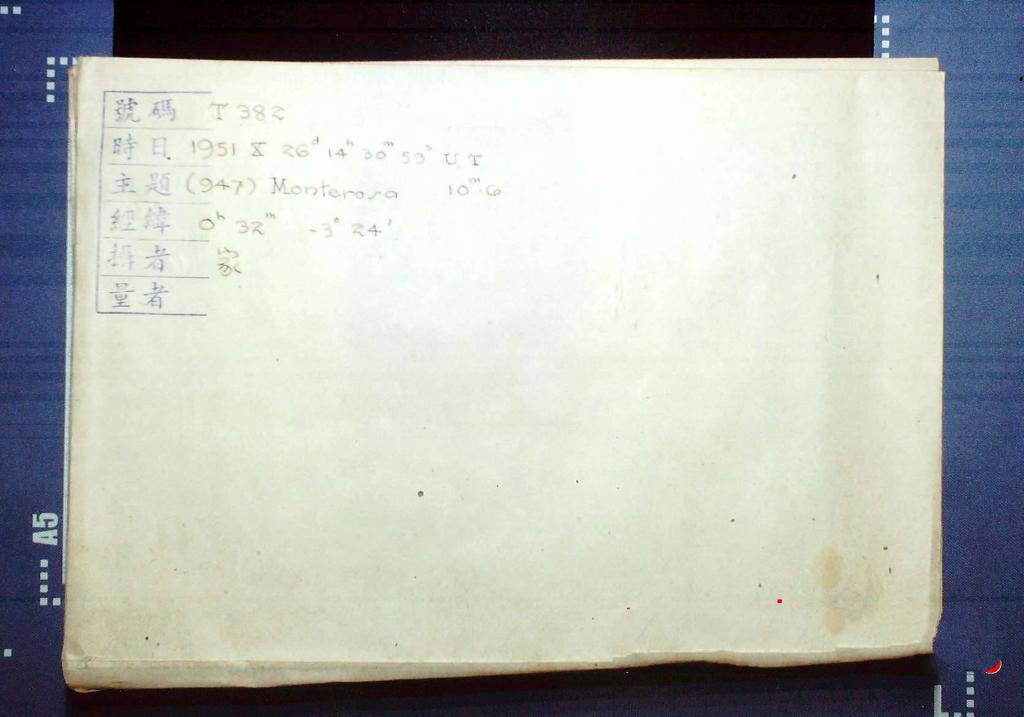 號碼 T 382
時日 1951 X 26ᵈ 14ʰ 30ᵐ 59ˢ U T
主題 (947) Monterosa 10ᵐ.6
經緯 0ʰ 32ᵐ -3° 24'
攝者 家
量者
A5